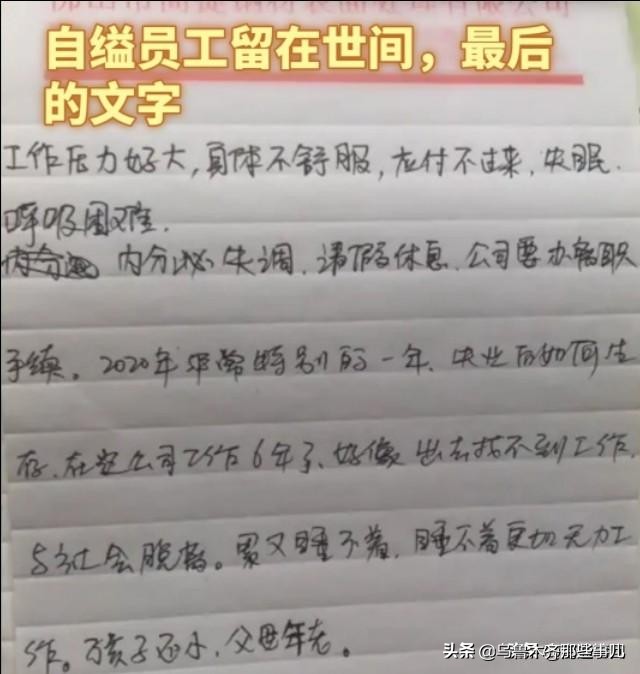 自缢员工留在世间，最后
的文字
工作压力好大，身体不舒服，应付不过来，失眠.
呼吸困难.
内分泌失调，请假休息，公司要办离职
手续。2020年非常特别的一年、失业后如何生
存，在 公司工作6年了、好像出去找不到工作，
与社会脱 。累又睡不着，睡不着更切无力工
作。孩子还小，父母年老。
头条 @乌鲁木齐那些事儿